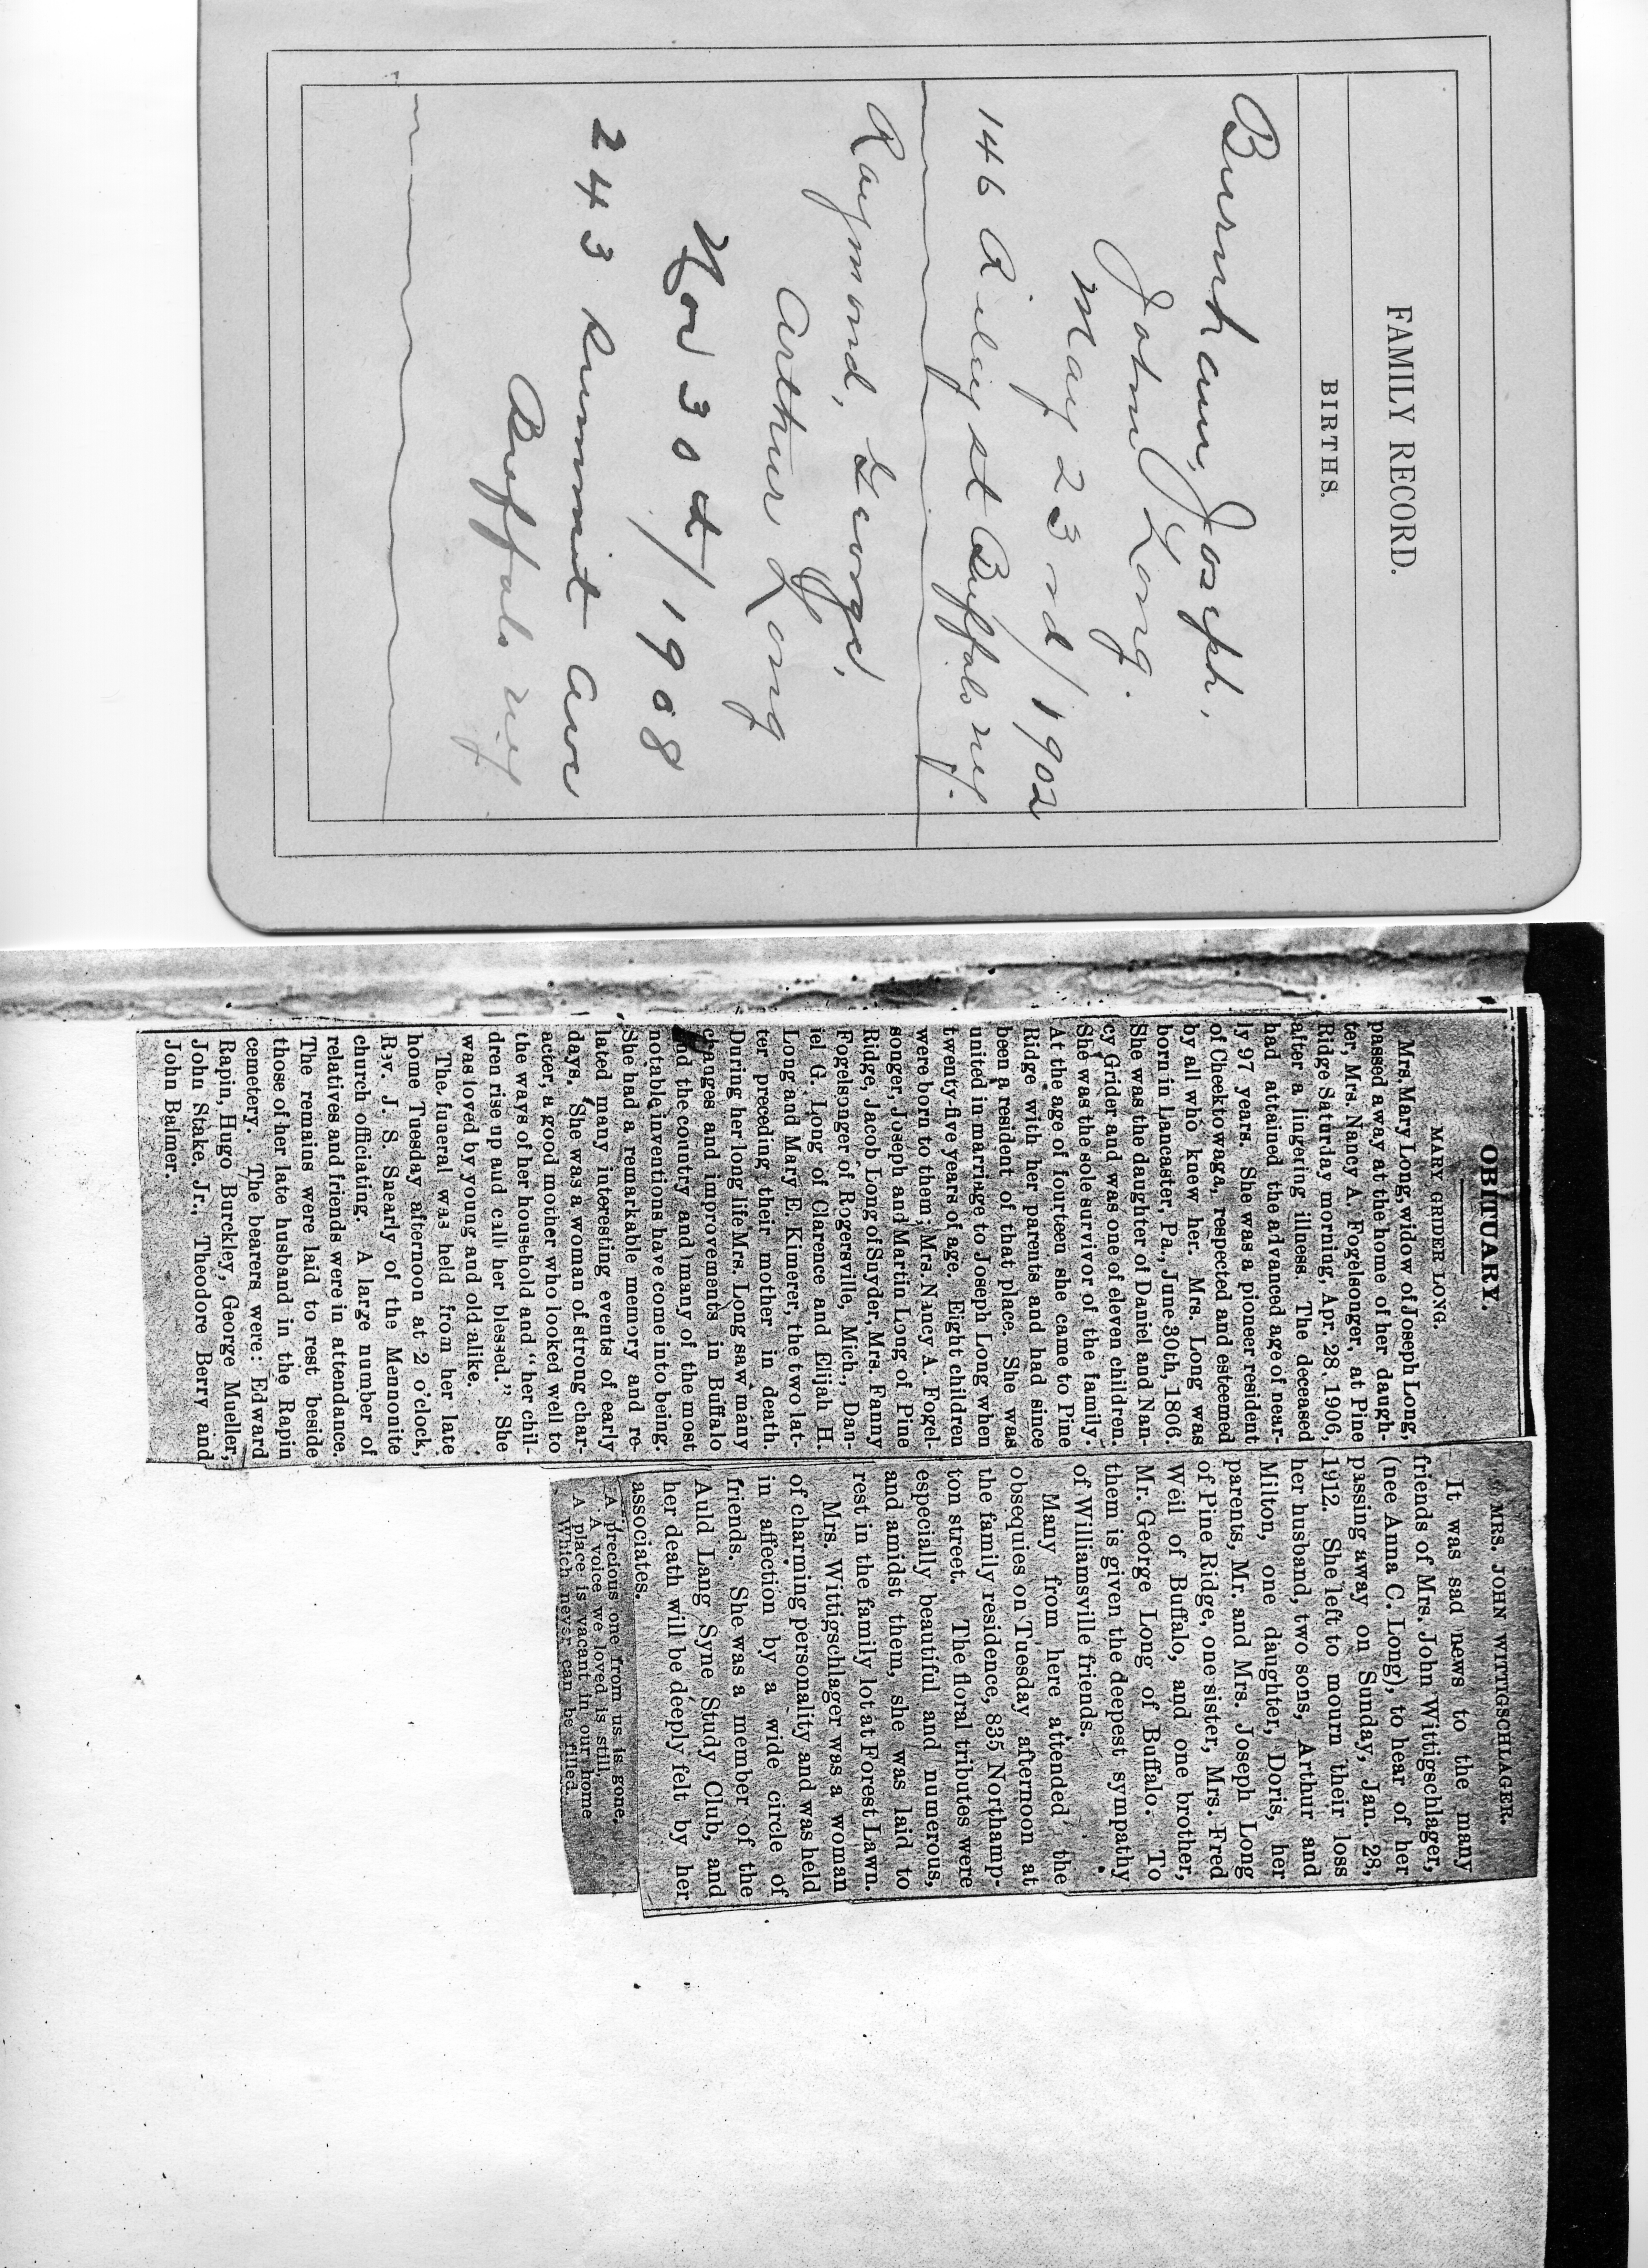 FAMILY RECORD.
BIRTHS.
Burnham, Joseph,
John Long.
May 23rd/1902
146 Riley st Buffalo ny.
Raymond, George,
Arthur Long
Nov 30th/1908
243 Summit Ave
Buffalo ny
OBITUARY.
MARY GRIDER LONG.
Mrs. Mary Long, widow of Joseph Long,
passed away at the home of her daugh-
ter, Mrs. Nancy A. Fogelsonger, at Pine
Ridge Saturday morning, Apr. 28, 1906,
after a lingering illness. The deceased
had attained the advanced age of near-
ly 97 years. She was a pioneer resident
of Cheektowaga, respected and esteemed
by all who knew her. Mrs. Long was
born in Lancaster, Pa., June 30th, 1806.
She was the daughter of Daniel and Nan-
cy Grider and was one of eleven children.
She was the sole survivor of the family.
At the age of fourteen she came to Pine
Ridge with her parents and had since
been a resident of that place. She was
united in marriage to Joseph Long when
twenty-five years of age. Eight children
were born to them; Mrs. Nancy A. Fogel-
songer, Joseph and Martin Long of Pine
Ridge, Jacob Long of Snyder, Mrs. Fanny
Fogelsonger of Rogersville, Mich., Dan-
iel G. Long of Clarence and Elijah H.
Long and Mary E. Kimerer, the two lat-
ter preceding their mother in death.
During her long life Mrs. Long saw many
changes and improvements in Buffalo
and the country and many of the most
notable inventions have come into being.
She had a remarkable memory and re-
lated many interesting events of early
days. She was a woman of strong char-
acter, a good mother who looked well to
the ways of her household and "her chil-
dren rise up aud call her blessed." She
was loved by young and old alike.
The funeral was held from her late
home Tuesday afternoon at 2 o'clock,
Rev. J. S. Snearly of the Mennonite
church officiating. A large number of
relatives and friends were in attendance.
The remains were laid to rest beside
those of her late husband in the Rapin
cemetery. The bearers were: Edward
Rapin, Hugo Burckley, George Mueller,
John Stake, Jr., Theodore Berry and
John Balmer.
MRS. JOHN WITTIGSCHLAGER.
It was sad news to the many
friends of Mrs. John Wittigschlager,
(nee Anna C. Long), to hear of her
passing away on Sunday, Jan. 28,
1912. She left to mourn their loss
her husband, two sons, Arthur and
Milton, one daughter, Doris, her
parents, Mr. and Mrs. Joseph Long
of Pine Ridge, one sister, Mrs. Fred
Weil of Buffalo, and one brother,
Mr. George Long of Buffalo. To
them is given the deepest sympathy
of Williamsville friends.
Many from here attended the
obsequies on Tuesday afternoon at
the family residence, 835 Northamp-
ton street. The floral tributes were
especially beautiful and numerous,
and amidst them, she was laid to
rest in the family lot at Forest Lawn.
Mrs. Wittigschlager was a woman
of charming personality and was held
in affection by a wide circle of
friends. She was a member of the
Auld Lang Syne Study Club, and
her death will be deeply felt by her
associates.
A precious one from us is gone,
A voice we loved is still,
A place is vacant in our home
Which never can be filled.